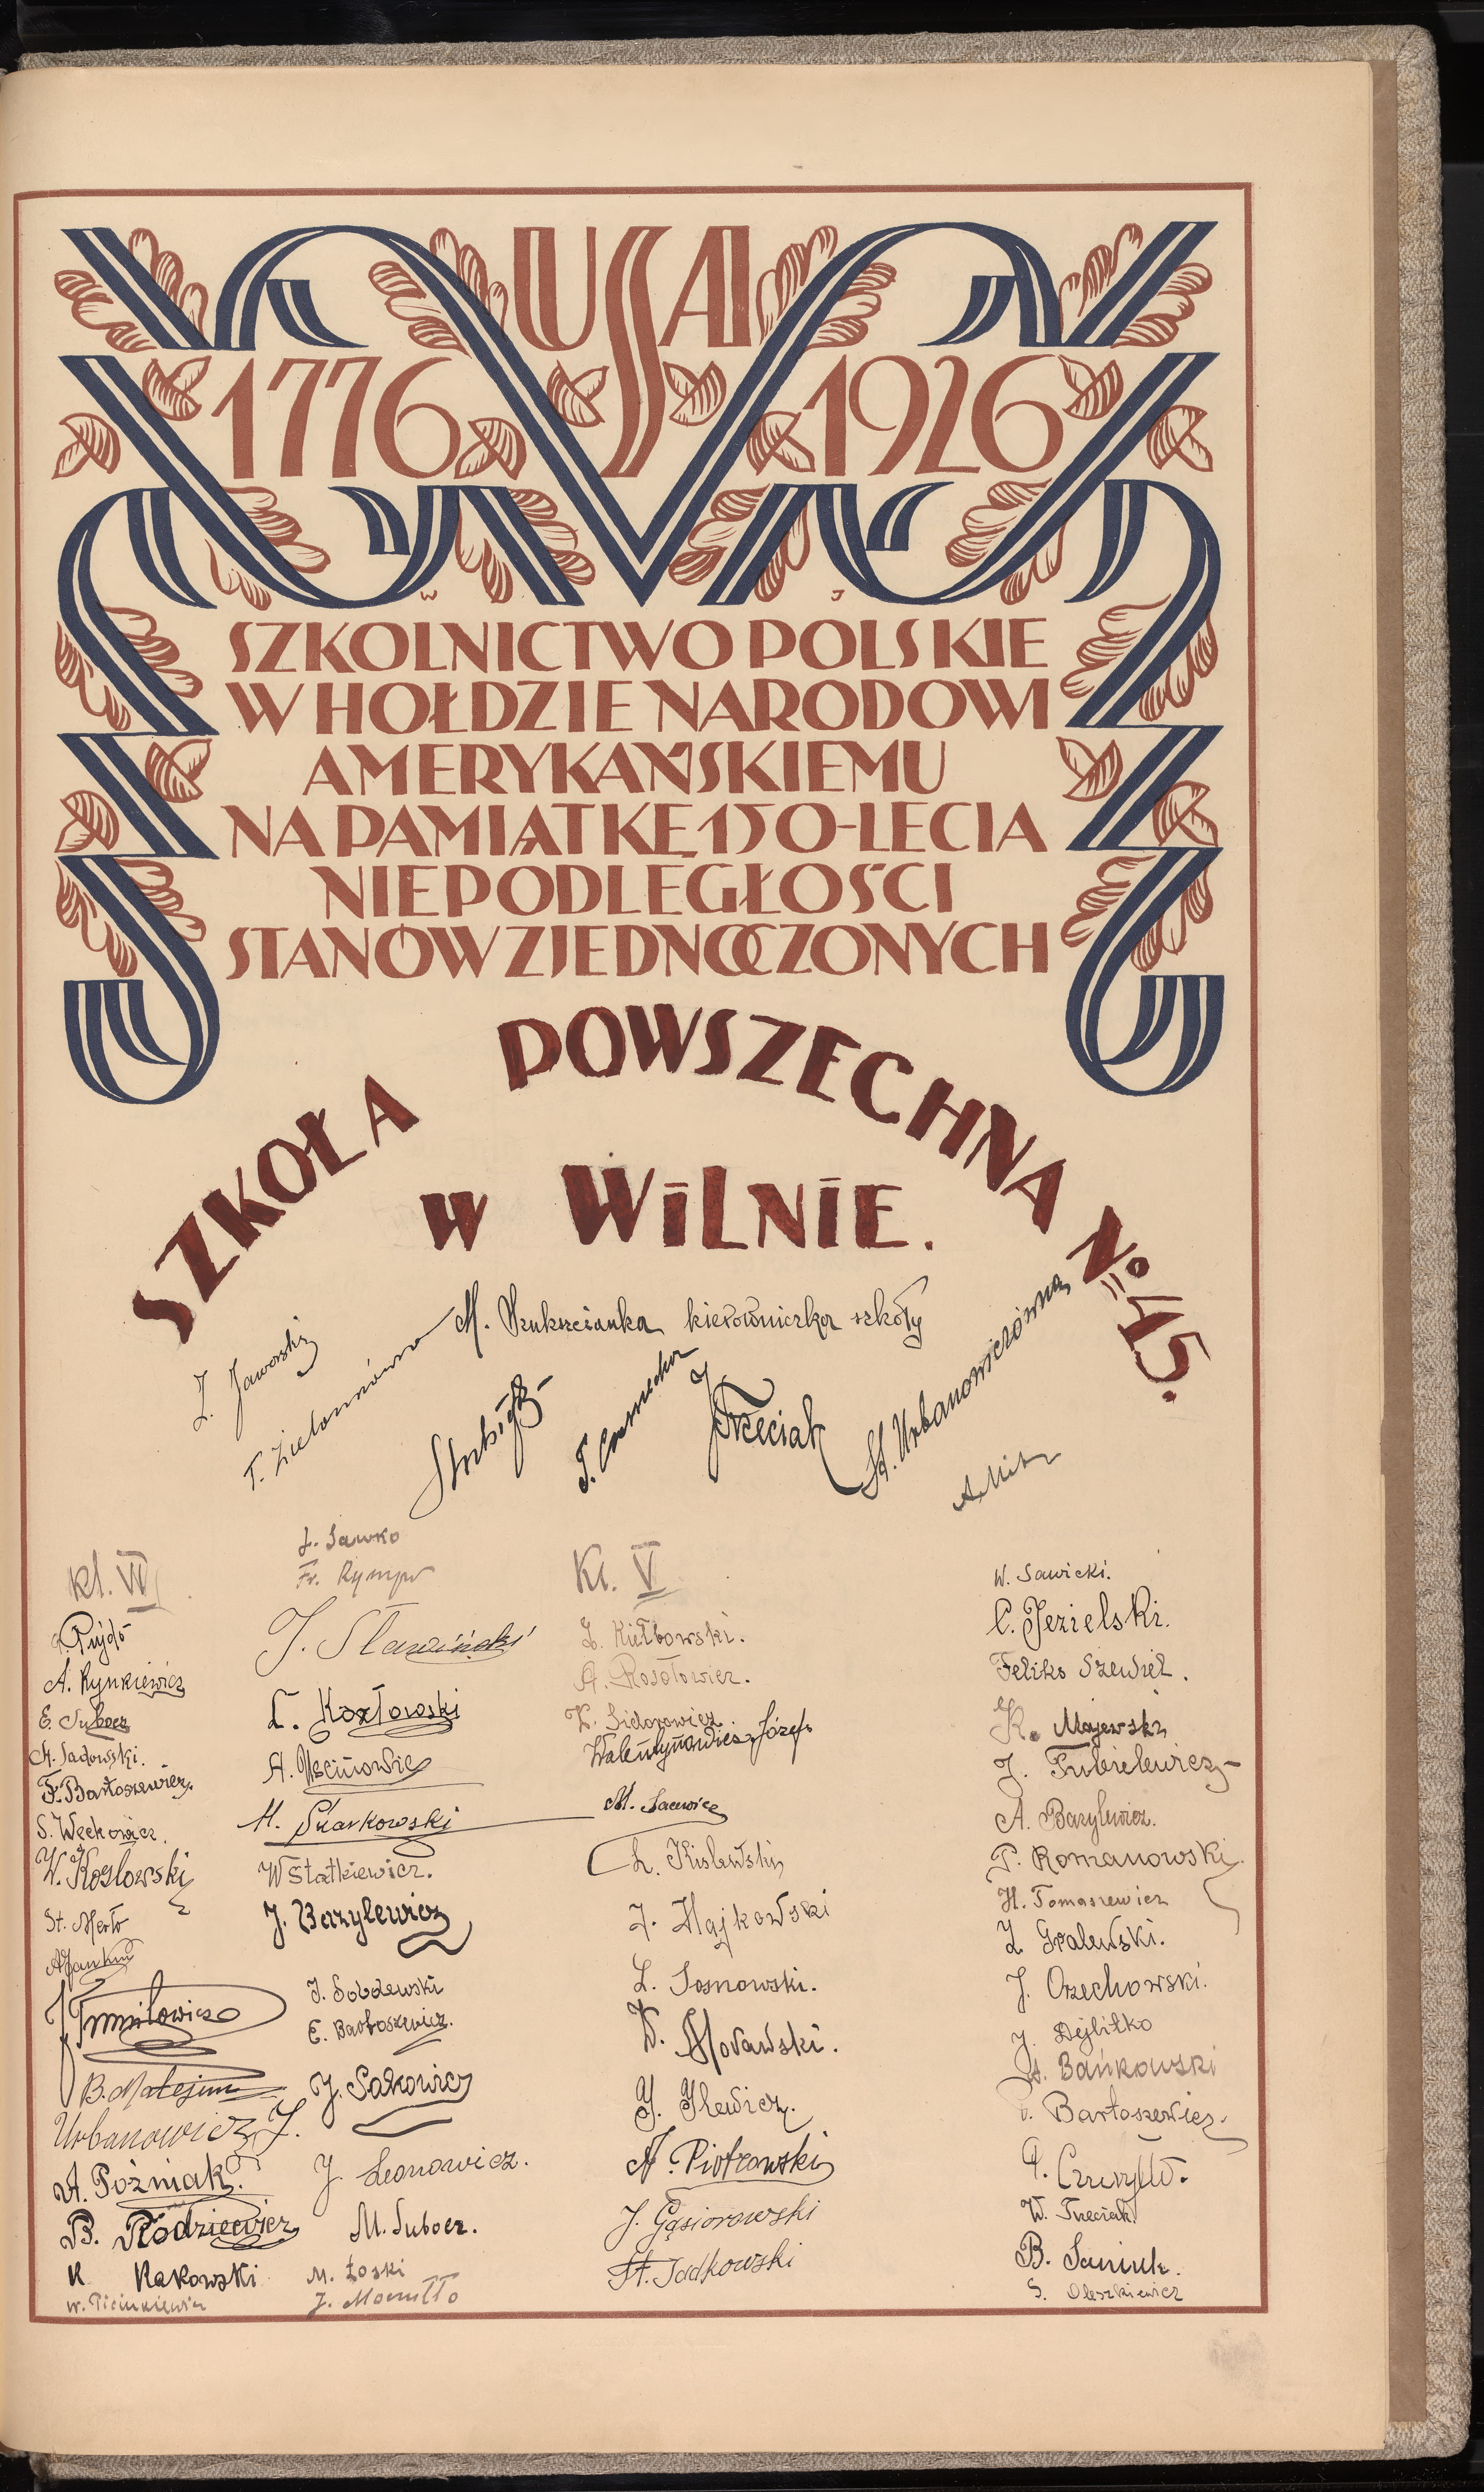 USA
1776 1926
W J
SZKOLNICTWO POLSKIE
W HOŁDZIE NARODOWI
AMERYKAŃSKIEMU
NA PAMIĄTKĘ 150-LECIA
NIEPODLEGŁOŚCI
STANÓW ZJEDNOCZONYCH
SZKOŁA POWSZECHNA № 45.
W WILNIE.
M. Szukszcianka kierowniczka szkoły
Z. Jaworski
T. Zielonkówna
T. Czarnecka
J. Trzeciak
St. Urbanowiczówna
Kl. VI
A. Rynkiewicz
E. Subocz
A. Sadowski.
F. Bartoszewicz.
S. Weckowicz.
W. Kozlowski
St. Merło
J. Tumiłowicz
B. Matejun
Urbanowicz J.
A. Poźniak.
B. Rodziewicz
K Rakowski
W. Picinkiewicz
L. Sawko
Fr. Rympo
J. Sławiński
L. Kozłowski
A.
M. Skarkowski
W Statkiewicz.
J. Bazylewicz
J. Sobolewski
E. Bartoszewicz.
J. Sakowicz
J. Leonowicz.
M. Subocz.
M. Łoski
J. Moczułło
Kl. V
Z. Kiełbowski.
A. Rosołowicz.
K. Sidorowicz.
Walentynowicz Józef
M. Sacewicz
L. Kislewski
J. Hajkowski
L. Sosnowski.
W. Morawski.
J. Ilewicz.
A. Piotrowski
J. Gąsiorowski
St. Jadkowski
W. Sawicki.
C. Jezielski.
Feliks Szewiel.
K. Majewski
J. Fubielewicz
A. Bazylewicz.
P. Romanowski.
H. Tomaszewicz
Z Gralewski.
J. Orzechowski.
J. Dejlitko
St. Bańkowski
Bartoszewicz.
W. Trzeciak
B. Saniuk.
S. Oleszkiewicz